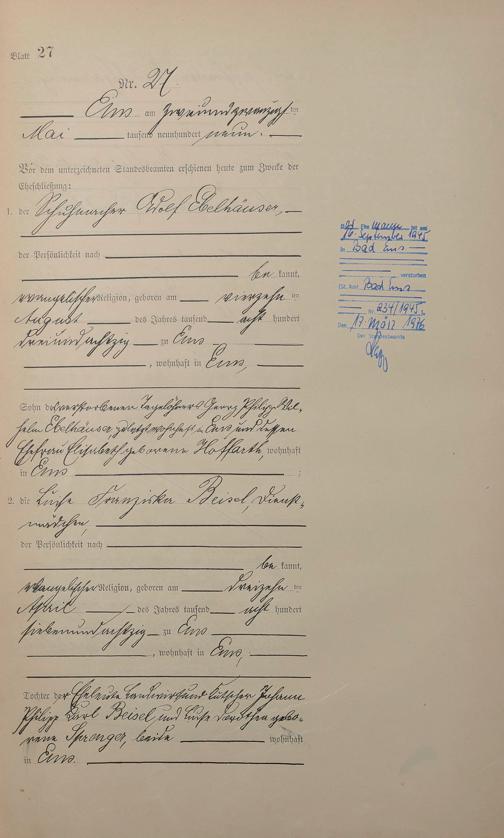 Blatt 27
Nr. 27
Ems am zweiundzwanzigsten
Mai tausend neunhundert neun.
Vor dem unterzeichneten Standesbeamten erschienen heute zum Zwecke der
Eheschließung:
1. der Schuhmacher Adolf Ebelhäuser,
der Persönlichkeit nach
be kannt,
evangelischer Religion, geboren am vierzehn ten
August des Jahres tausend acht hundert
dreiundachtzig zu Ems
, wohnhaft in Ems,
Sohn des verstorbenen Tagelöhners Georg Philipp Wil-
helm Ebelhäuser, zuletzt wohnhaft in Ems und dessen
Ehefrau Elisabeth geborene Hoffarth, wohnhaft
in Ems ;
2. die Luise Franziska Beisel, Dienst-
mädchen,
der Persönlichkeit nach
be kannt,
evangelischer Religion, geboren am dreizehn ten
April des Jahres tausend acht hundert
siebenundachtzig zu Ems
, wohnhaft in Ems,
Tochter der Eheleute Landwirt und Kutscher Johann
Philipp Karl Beisel und Luise Dorothea gebo-
rene Sprenger, beide wohnhaft
in Ems.
September 1945
in Bad Ems
verstorben
Bad Ems
Nr. 234/1945.
Den 17. März 1976
Der Standesbeamte